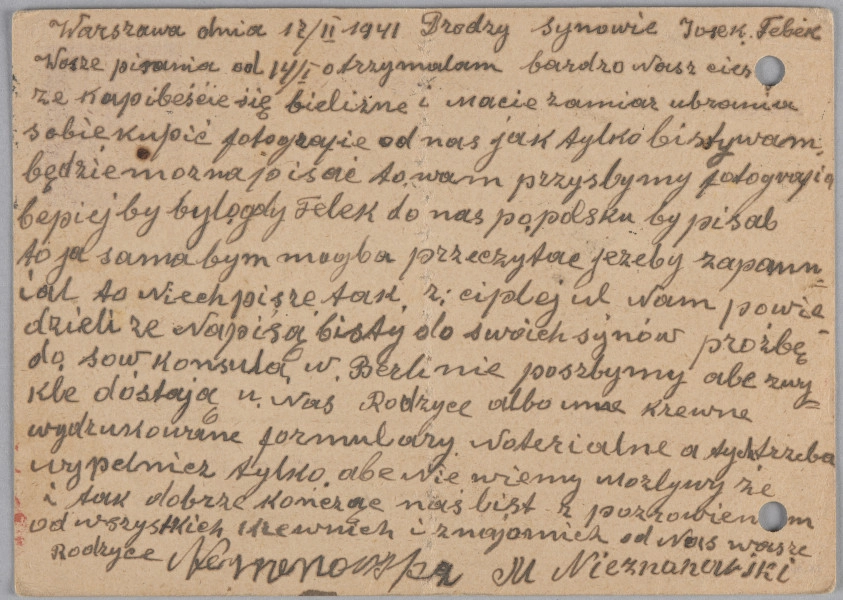 Warszawa dnia 17/II 1941 Drodzy synowie Josek. Felek
Wasze pisania od 14/I otrzymalam bardzo nasz cies
ze kapibeście się bielizne i macie zamiar ubrania
sobie kupić fotografie od nas jak tylko bistywam,
będzie mozna pisać to wam przysbymy fotografia
bepiej by bylo gdy Felek do nas po polsku by pisab
to ja sama bym mogba przeczytac jezeby zapomn=
ial to niech pisze tak, z. ciplej ul Nam powie=
dzieli ze Napiszą bisty do swoich synów prozbę
do sow konsula w. Berlinie poszbymy abe zwy=
kbe dostają u. Nas Rodzyce albo inne krewne
wydrukowane formulary Noterialne a tych trzeba
wypelnicz tylko, abe Nie wiemy mozlywy ze
i tak dobrze kończąc nas bist z pozrowien m
od wszystkich krewnich i znajomich od Nas wasze
Rodzyce M Nieznanowski